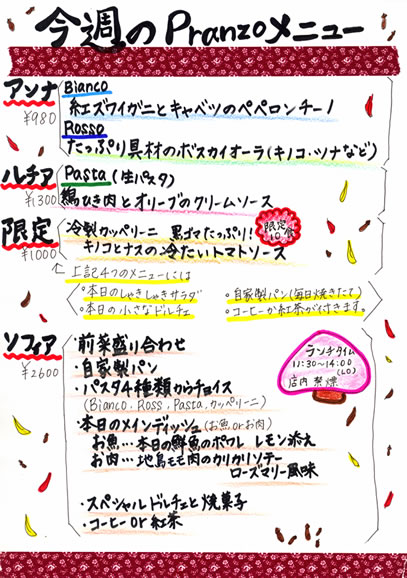 今週のPranzoメニュー
アンナ
¥980
Bianco
紅ズワイガニとキャベツのペペロンチーノ
Rosso
たっぷり具材のボスカイオーラ(キノコ・ツナなど)
ルチア
¥1300
Pasta(生パスタ)
鶏ひき肉とオリーブのクリームソース
限定
¥1000
冷製カッペリーニ 黒ゴマたっぷり!!
キノコとナスの冷たいトマトソース
限定
10食
上記4つのメニューには
・本日のしゃきしゃきサラダ ・自家製パン(毎日焼きたて)
・本日の小さなドルチェ ・コーヒーか紅茶が付きます。
ソフィア
¥2600
・前菜盛り合わせ
・自家製パン
・パスタ4種類からチョイス
(Bianco, Ross, Pasta, カッペリーニ)
・本日のメインディッシュ(お魚orお肉)
お魚…本日の鮮魚のポワレ レモン添え
お肉…地鳥モモ肉のカリカリソテー
ローズマリー風味
・スペシャルドルチェと焼菓子
・コーヒーor紅茶
ランチタイム
11:30~14:00
(LO)
店内禁煙